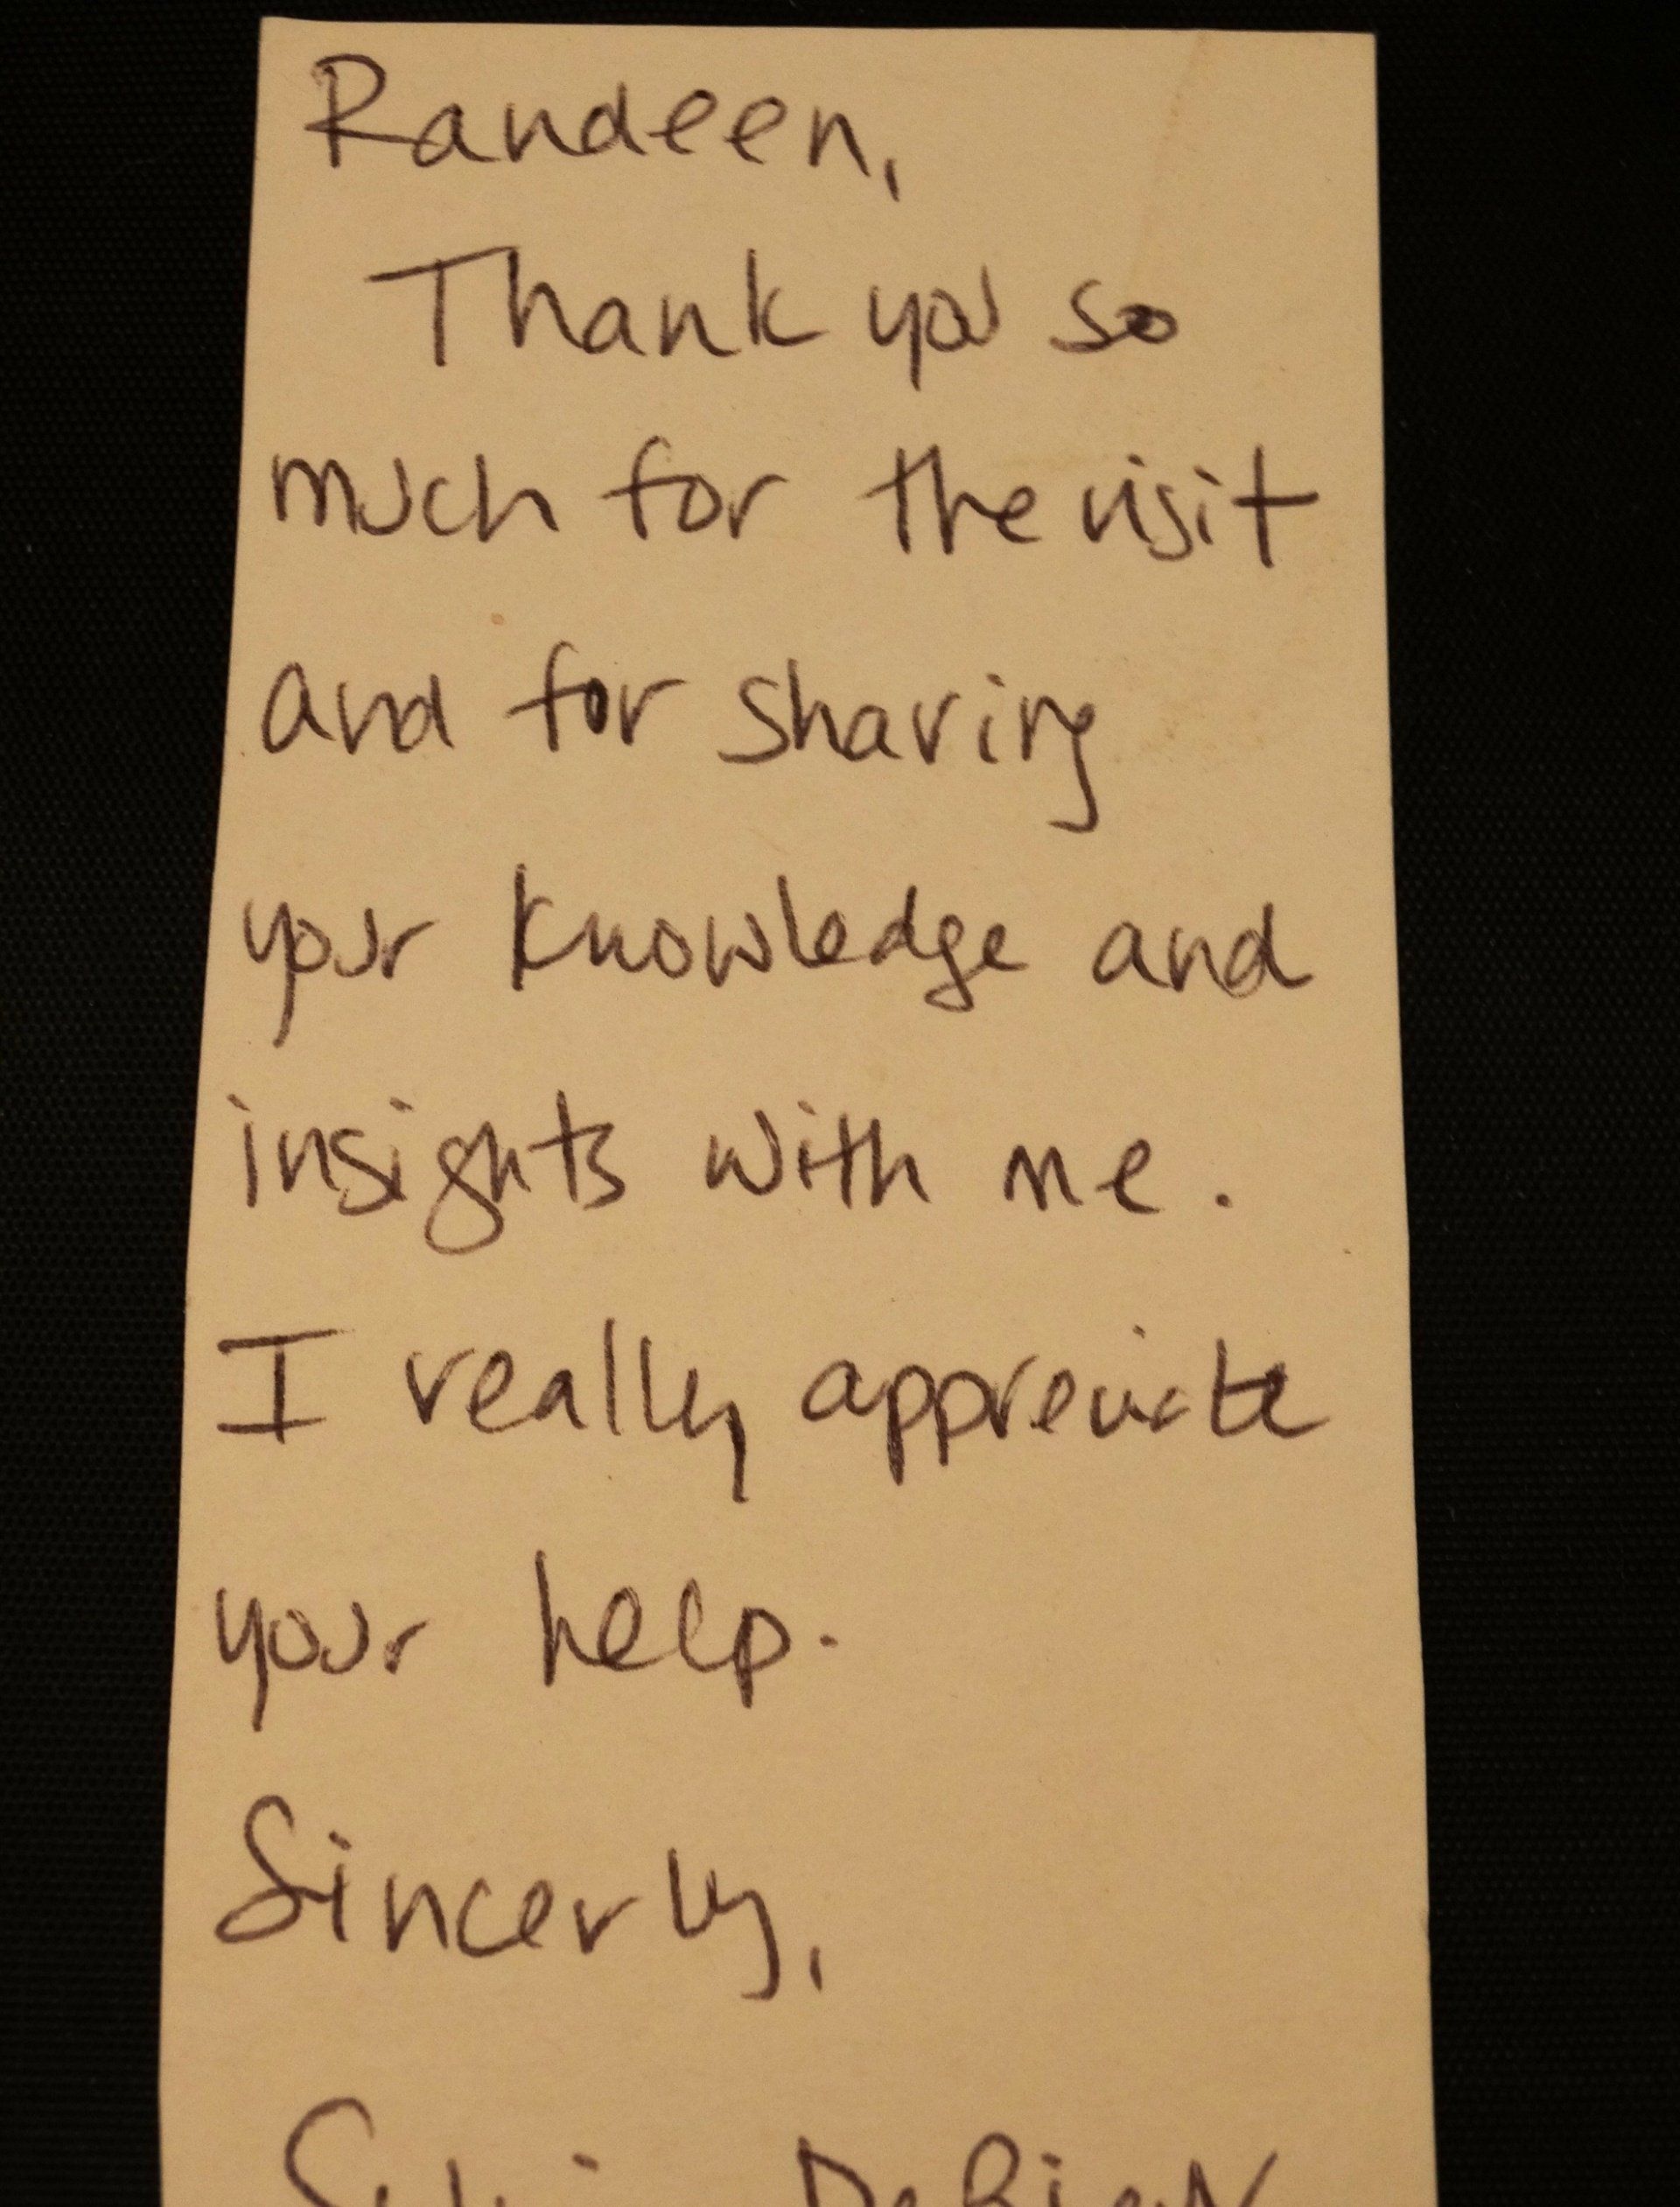 Randeen,
Thank you so
much for the visit
and for sharing
your knowledge and
insights with me.
I really appreciate
your help.
Sincerly,